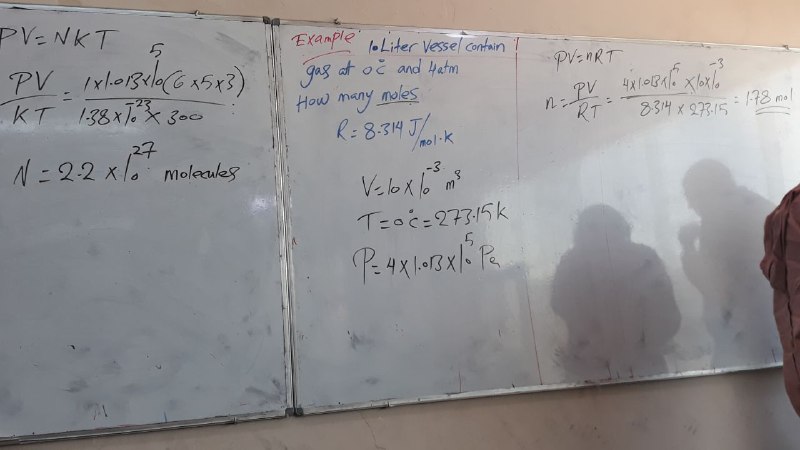 PV = NKT
PV/KT = 1 × 1.013 × 10^5 (6 × 5 × 3) / 1.38 × 10^-23 × 300
N = 2.2 × 10^27 molecules
Example 10 Liter vessel contain
gas at 0°C and 4 atm
How many moles
R = 8.314 J/mol·k
V = 10 × 10^-3 m^3
T = 0°C = 273.15 k
P = 4 × 1.013 × 10^5 Pa
PV = nRT
n = PV/RT = 4 × 1.013 × 10^5 × 10 × 10^-3 / 8.314 × 273.15 = 1.78 mol